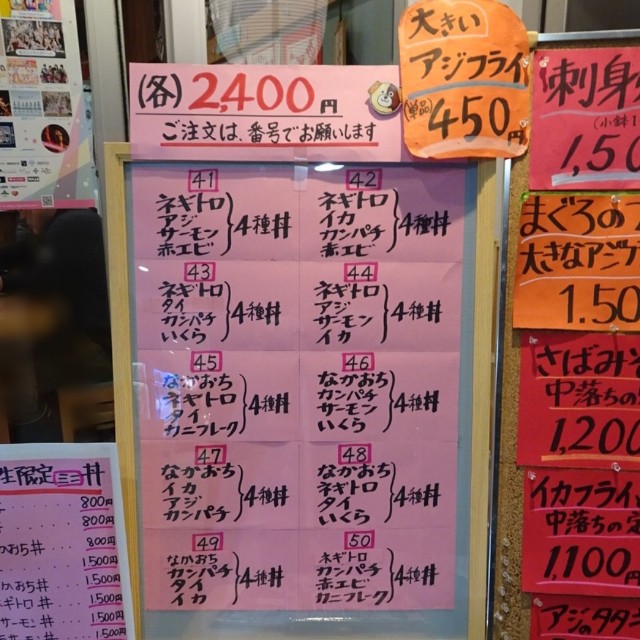 (各) 2,400円
ご注文は、番号でお願いします
大きい
アジフライ
(単品)
450円
41
ネギトロ
アジ
サーモン
赤エビ
4種丼
42
ネギトロ
イカ
カンパチ
赤エビ
4種丼
43
ネギトロ
タイ
カンパチ
いくら
4種丼
44
ネギトロ
アジ
サーモン
イカ
4種丼
45
なかおち
ネギトロ
タイ
カニフレーク
4種丼
46
なかおち
カンパチ
サーモン
いくら
4種丼
47
なかおち
イカ
アジ
カンパチ
4種丼
48
なかおち
ネギトロ
タイ
いくら
4種丼
49
なかおち
カンパチ
タイ
イカ
4種丼
50
ネギトロ
カンパチ
赤エビ
カニフレーク
4種丼
刺身
(小鉢1
1,50
まぐろの
大きなアジフ
1.50
さばみそ
中落ちの
1,200
イカフライ
中落ちの定
1,100円
アジのタタ
生限定ミニ丼
800円
800円
かおち丼 800円
1,500円
かおち丼 1,500円
ネギトロ丼 1,500円
サーモン丼 1,500円
1,500円